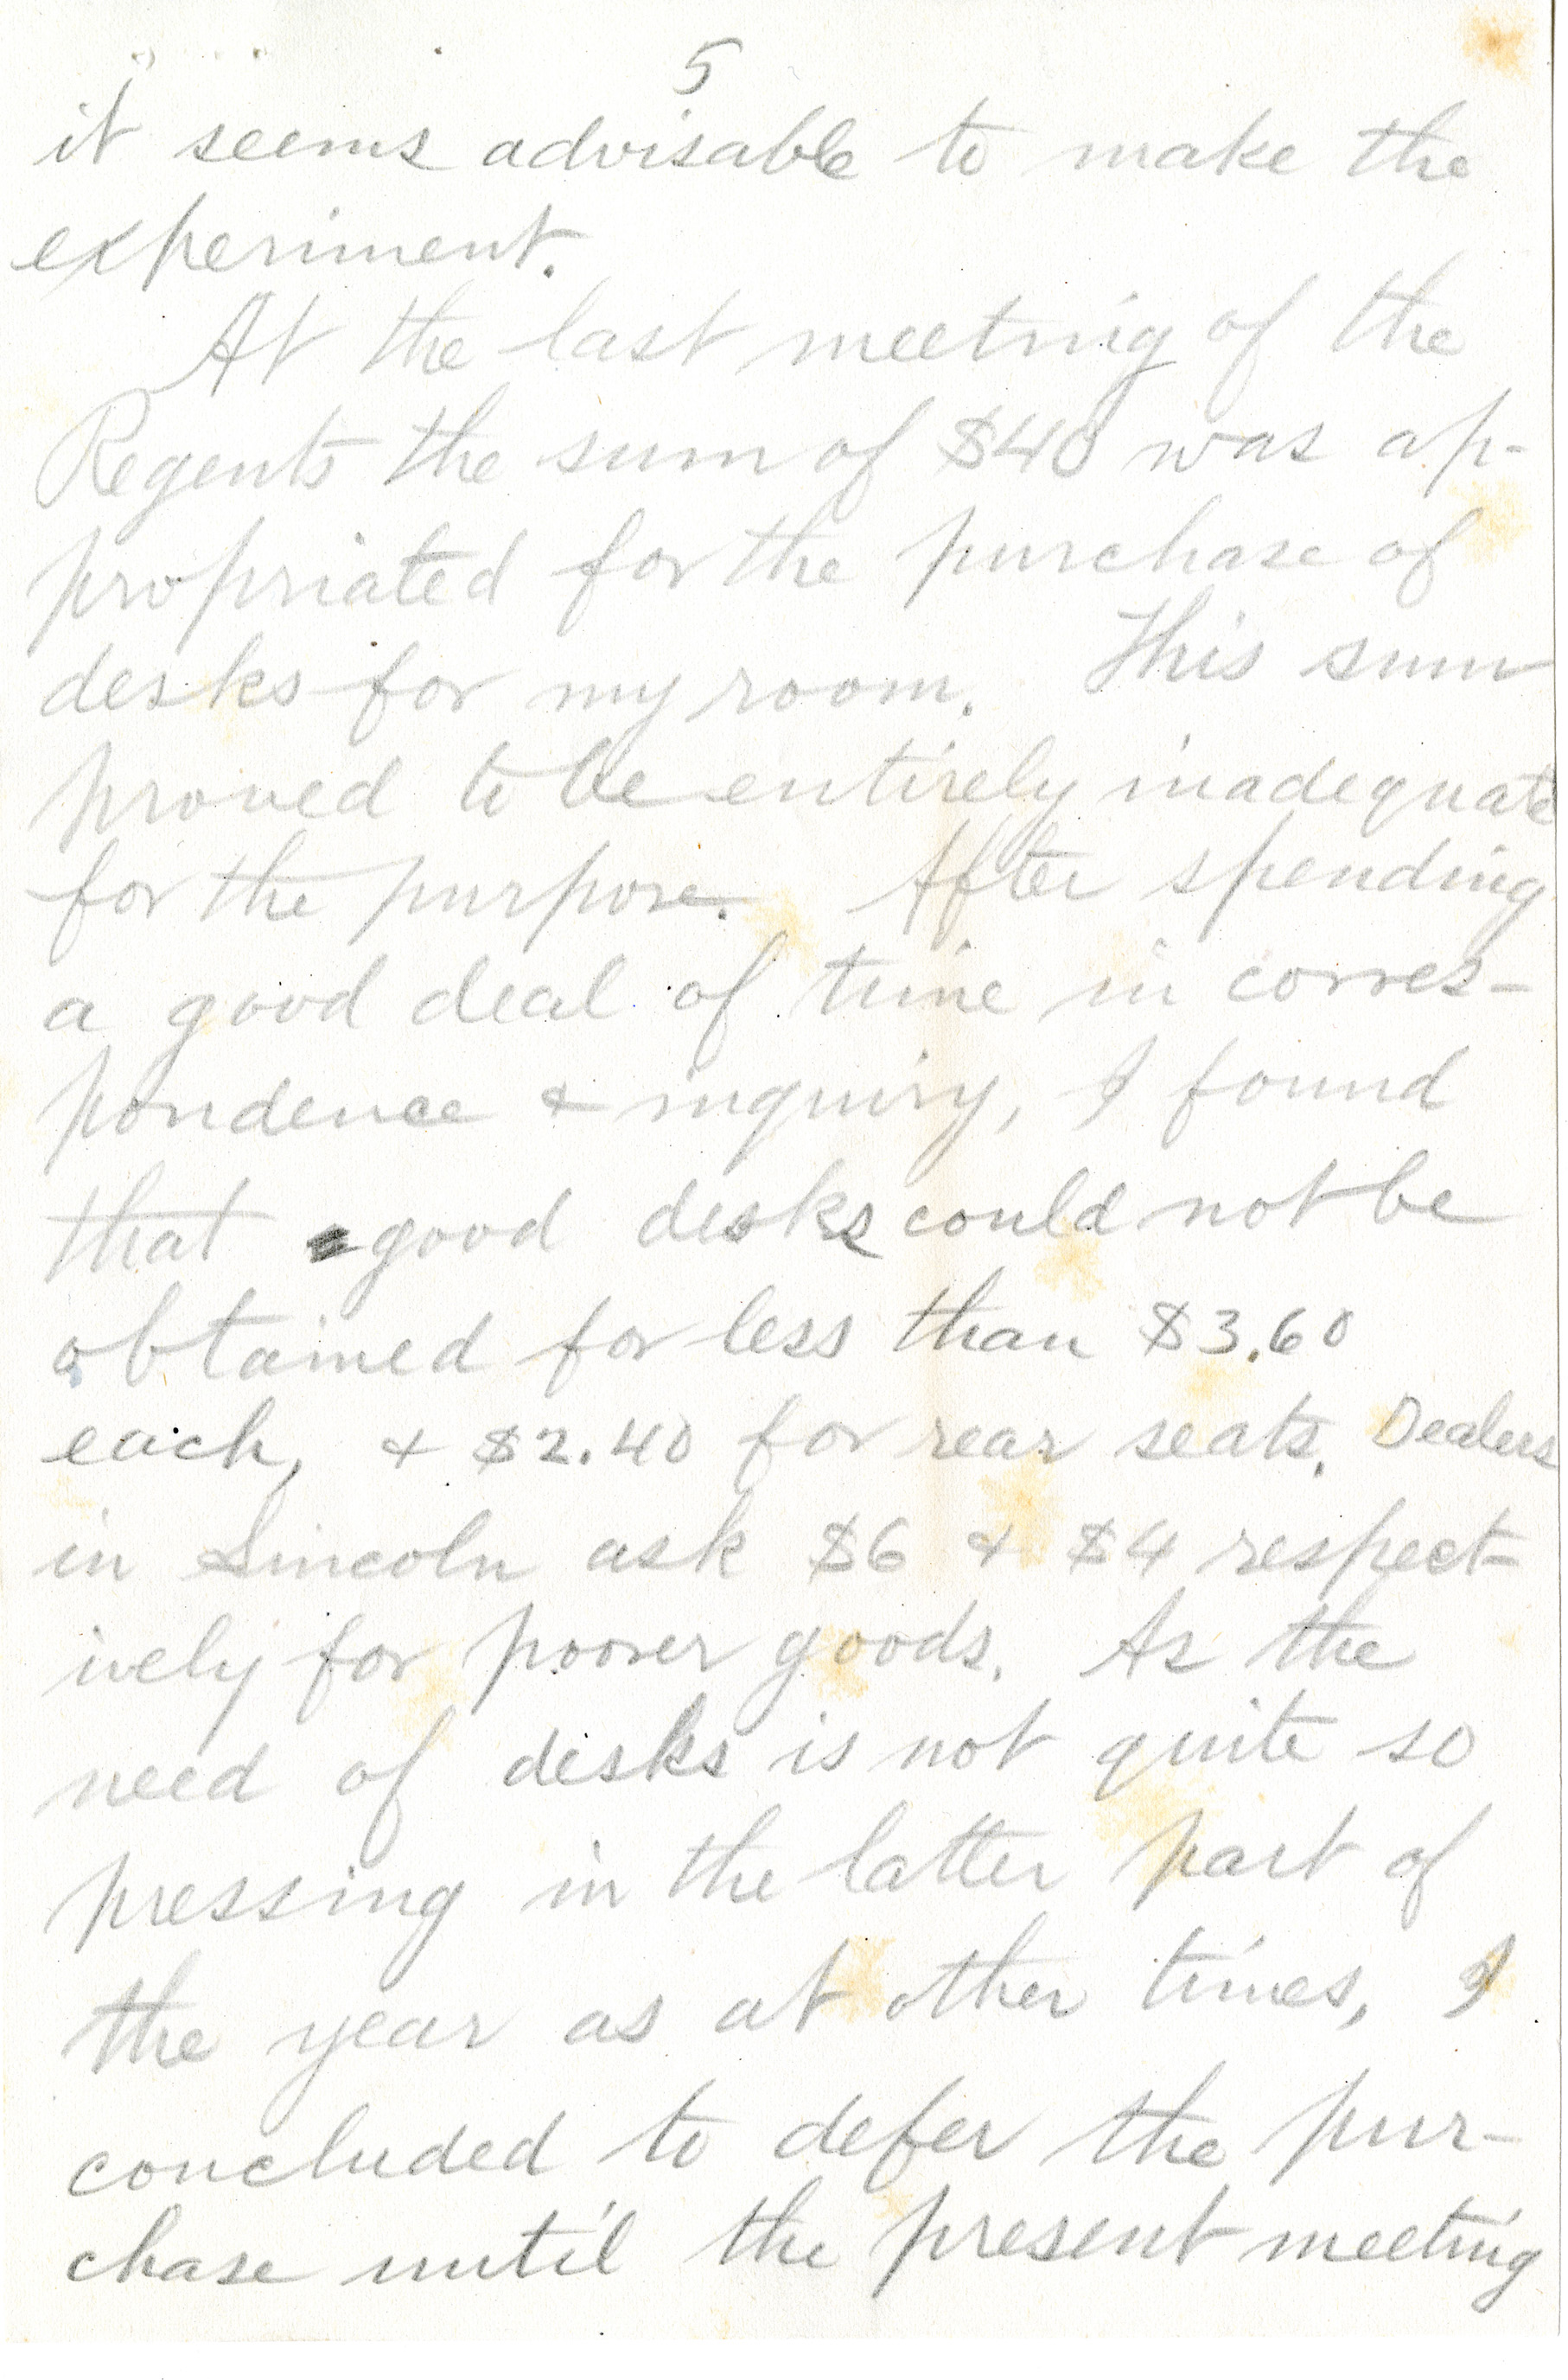 5
it seems advisable to make the
experiment.
At the last meeting of the
Regents the sum of $40 was ap-
propriated for the purchase of
desks for my room. This sum
proved to be entirely inadequate
for the purpose. After spending
a good deal of time in corres-
pondence & inquiry, I found
that good desks could not be
obtained for less than $3.60
each, & $2.40 for rear seats. Dealers
in Lincoln ask $6 & $4 respect-
ively for poorer goods. As the
need of desks is not quite so
pressing in the latter part of
the year as at other times, I
concluded to defer the pur-
chase until the present meeting